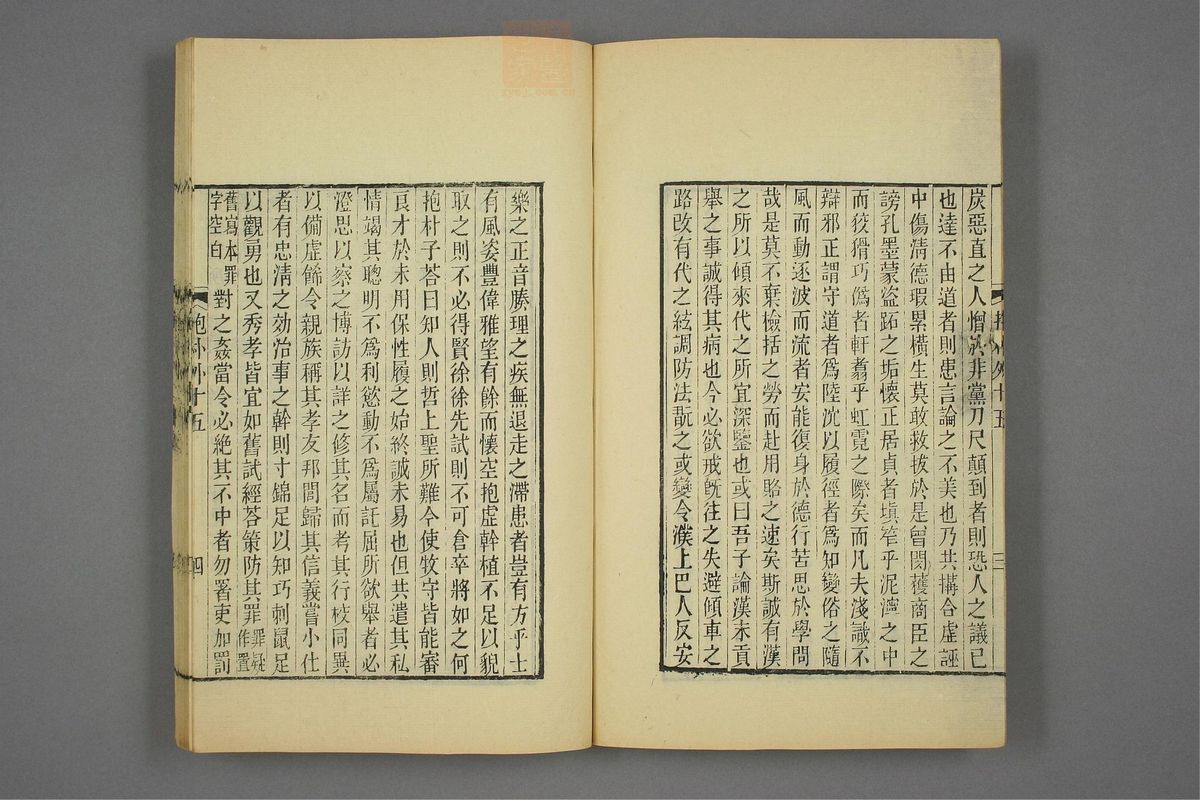 炭惡直之人憎於非黨刀尺顛到者則恐人之議已
也達不由道者則患言論之不美也乃共搆合虛誣
中傷清德瑕累橫生莫敢救拔於是曾閔獲商臣之
謗孔墨蒙盜跖之垢懷正居貞者塡笮乎泥濘之中
而狡猾巧僞者軒翥乎虹霓之際矣而凡夫淺識不
辯邪正謂守道者爲陸沈以履徑者爲知變俗之隨
風而動逐波而流者安能復身於德行苦思於學問
哉是莫不棄檢括之勞而赴用賂之速矣斯誠有漢
之所以傾來代之所宜深鑒也或曰吾子論漢末貢
舉之事誠得其病也今必欲戒旣往之失避傾車之
路改有代之絃調防法翫之或變令濮上巴人反安
樂之正音腠理之疾無退走之滯患者豈有方乎士
有風姿豐偉雅望有餘而懷空抱虛幹植不足以貌
取之則不必得賢徐徐先試則不可倉卒將如之何
抱朴子荅曰知人則哲上聖所難今使牧守皆能審
良才於未用保性履之始終誠未易也但共遣其私
情竭其聰明不爲利慾動不爲屬託屈所欲舉者必
澄思以察之博訪以詳之修其名而考其行校同異
以備虛飾令親族稱其孝友邦閭歸其信義嘗小仕
者有忠清之効治事之幹則寸錦足以知巧刺鼠足
以觀勇也又秀孝皆宜如舊試經荅策防其罪罪疑作置
舊寫本罪字空白對之姦當令必絕其不中者勿署吏加罰
抱朴外十五
三
抱朴外十五
四